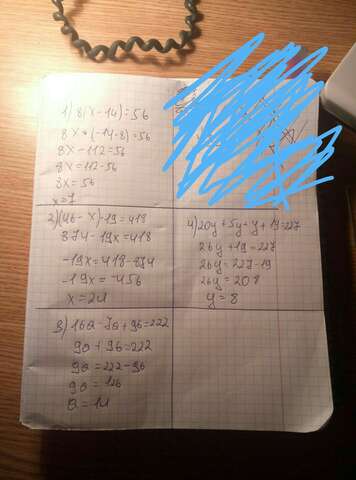 1) 8(x-14)=56
8x+(-14·8)=56
8x-112=56
8x=112-56
8x=56
x=7
2)(46-x)·19=418
874-19x=418
-19x=418-874
-19x=-456
x=24
3) 16a-7a+96=222
9a+96=222
9a=222-96
9a=126
a=14
4) 20y+5y+y+19=227
26y+19=227
26y=227-19
26y=208
y=8